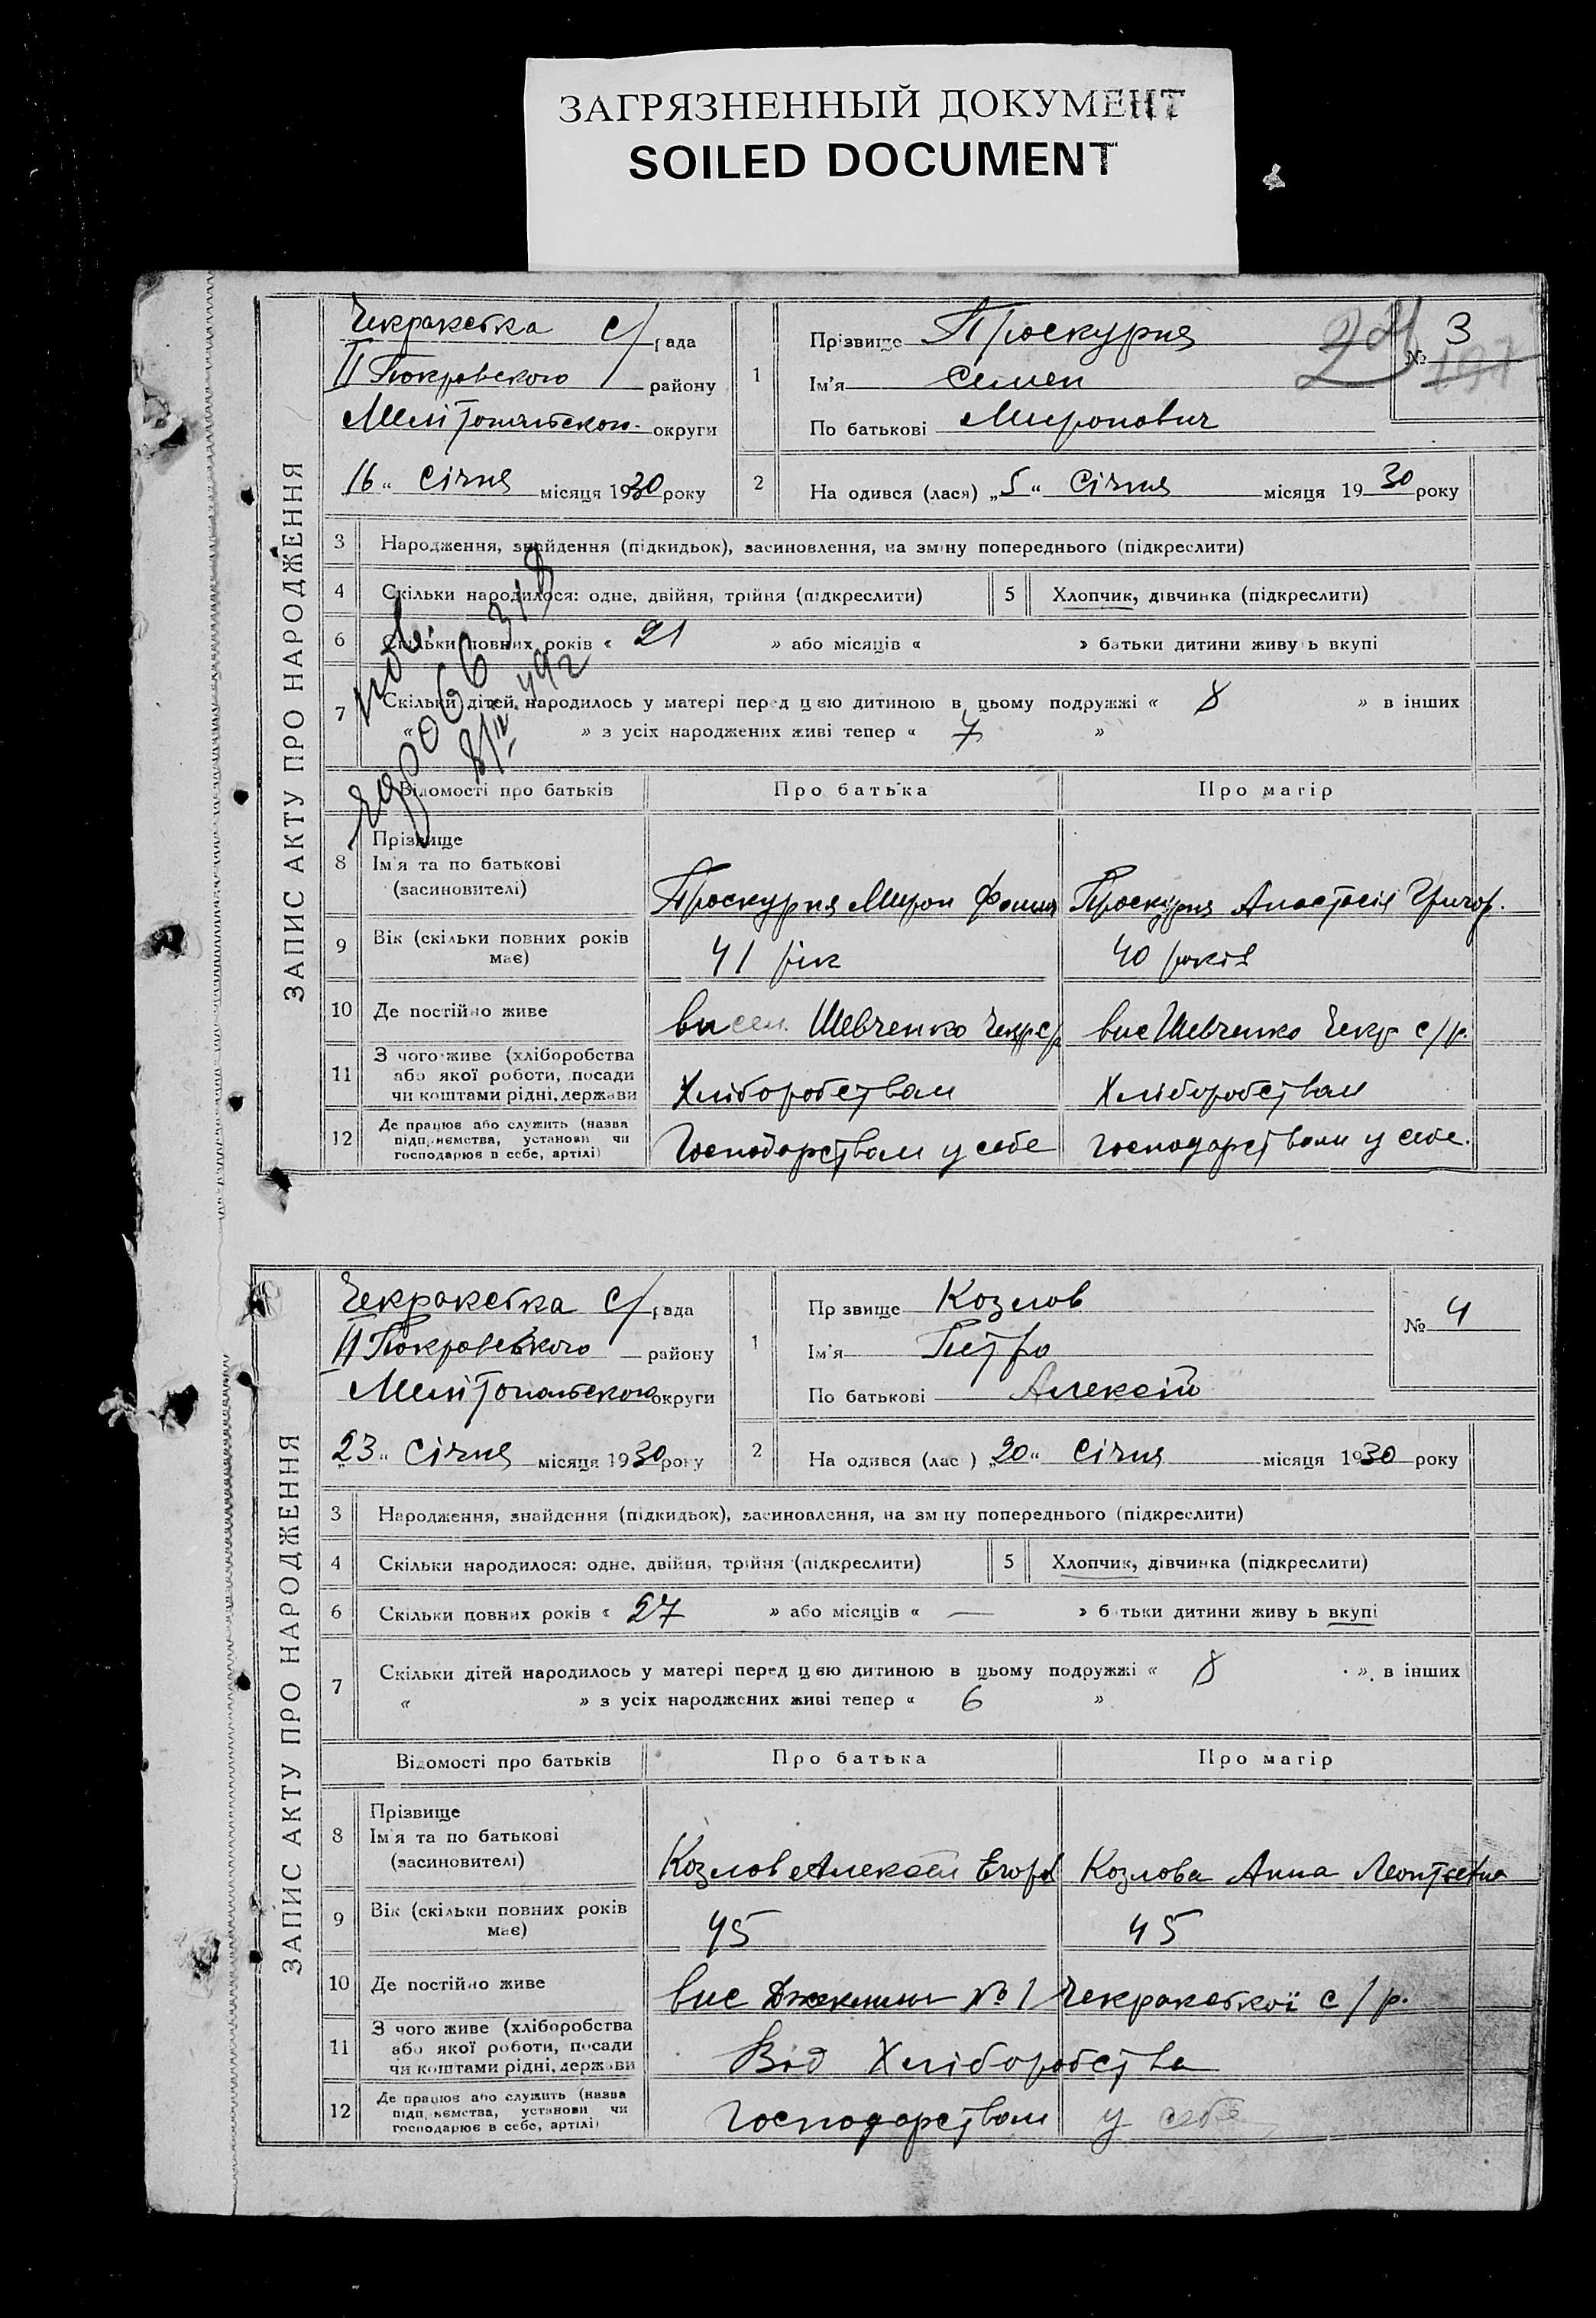 ЗАГРЯЗНЕННЫЙ ДОКУМЕНТ
SOILED DOCUMENT
ЗАПИС АКТУ ПРО НАРОДЖЕННЯ
Чекракська с/рада
П Покровського району
Мелітопольськой округи
16 " Січня місяця 1930 року
1
Прізвище Проскурня
Ім'я Семен
По батькові Миронович
№ 3
197
2
На одився (лася) „5" Січня місяця 1930 року
3 Народження, знайдення (підкидьок), засиновлення, на зміну попереднього (підкреслити)
4 Скільки народилося: одне, двійня, трійня (підкреслити) 5 Хлопчик, дівчинка (підкреслити)
6 Скільки повних років « 21 » або місяців « » батьки дитини живу ь вкупі
7 Скільки дітей народилось у матері перед цею дитиною в цьому подружжі « 8 » в інших
« » з усіх народжених живі тепер « 7 »
Відомості про батьків Про батька Про матір
8 Прізвище
Ім'я та по батькові
(засиновителі)
Проскурня Мирон Проскурня Анастасія Григор.
9 Вік (скільки повних років має) 41 рік 40 років
10 Де постійно живе висел. Шевченко Чекр с/р вис Шевченко Чекр с/р.
11 З чого живе (хліборобства
або якої роботи, посади
чи коштами рідні, держави
Хліборобством Хліборобством
12 Де працює або служить (назва
підприємства, установи чи
господарює в себе, артілі)
Господарством у себе господарством у себе.
ЗАПИС АКТУ ПРО НАРОДЖЕННЯ
Чекракська с/рада
П Покровського району
Мелітопольського округи
„23" Січня місяця 1930 року
1
Пр звище Козлов
Ім'я Петро
По батькові Алексій
№ 4
2
На одився (лас ) „20" Січня місяця 1930 року
3 Народження, знайдення (підкидьок), засиновлення, на зм ну попереднього (підкреслити)
4 Скільки народилося: одне, двійня, трійня (підкреслити) 5 Хлопчик, дівчинка (підкреслити)
6 Скільки повних років « 27 » або місяців « — » б тьки дитини живу ь вкупі
7 Скільки дітей народилось у матері перед цею дитиною в цьому подружжі « 8 » в інших
« » з усіх народжених живі тепер « 6 »
Відомості про батьків Про батька Про матір
8 Прізвище
Ім'я та по батькові
(засиновителі)
Козлов Алексей Егоров Козлова Анна Леонтьевна
9 Вік (скільки повних років має) 45 45
10 Де постійно живе вис № 1 Чекракської с/р.
11 З чого живе (хліборобства
або якої роботи, посади
чи коштами рідні, держави
Від Хліборобства
12 Де працює або служить (назва
підприємства, установи чи
господарює в себе, артілі)
Господарством у себе